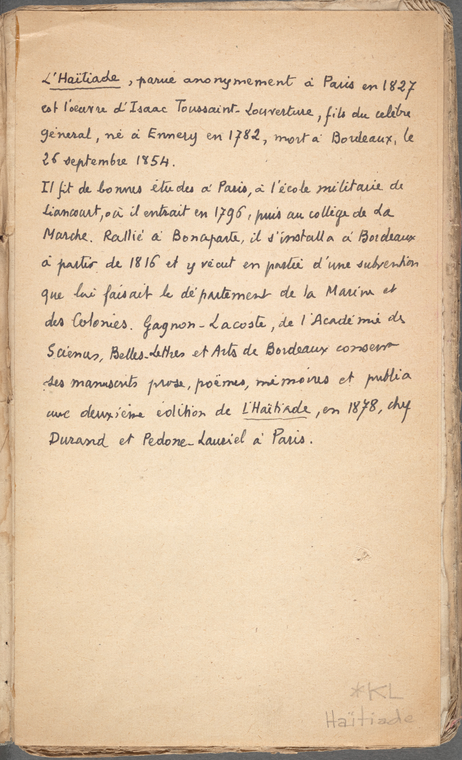 L'Haïtiade, parue anonymement à Paris en 1827
est l'œuvre d'Isaac Toussaint-Louverture, fils du célèbre
général, né à Ennery en 1782, mort à Bordeaux, le
26 septembre 1854.
Il fit de bonnes études à Paris, à l'école militaire de
Liancourt, où il entrait en 1796, puis au collège de La
Marche. Rallié à Bonaparte, il s'installa à Bordeaux
à partir de 1816 et y vécut en partie d'une subvention
que lui faisait le département de la Marine et
des Colonies. Gragnon-Lacoste, de l'Académie des
Sciences, Belles-Lettres et Arts de Bordeaux conserva
ses manuscrits prose, poèmes, mémoires et publia
une deuxième édition de L'Haïtiade, en 1878, chez
Durand et Pedone-Lauriel à Paris.
*KL
Haïtiade